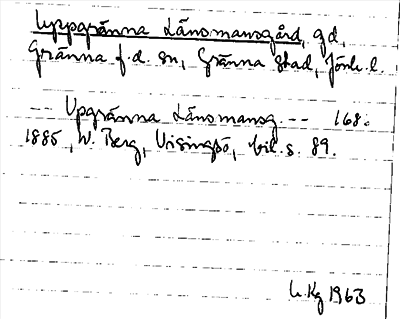 Uppgränna Länsmansgård, gd,
Gränna f.d. sn, Gränna stad, Jönk. l.
-- Upgränna Länsmansg. -- 168.
1885, W. Berg, Visingsö, bil. s. 89.
1963